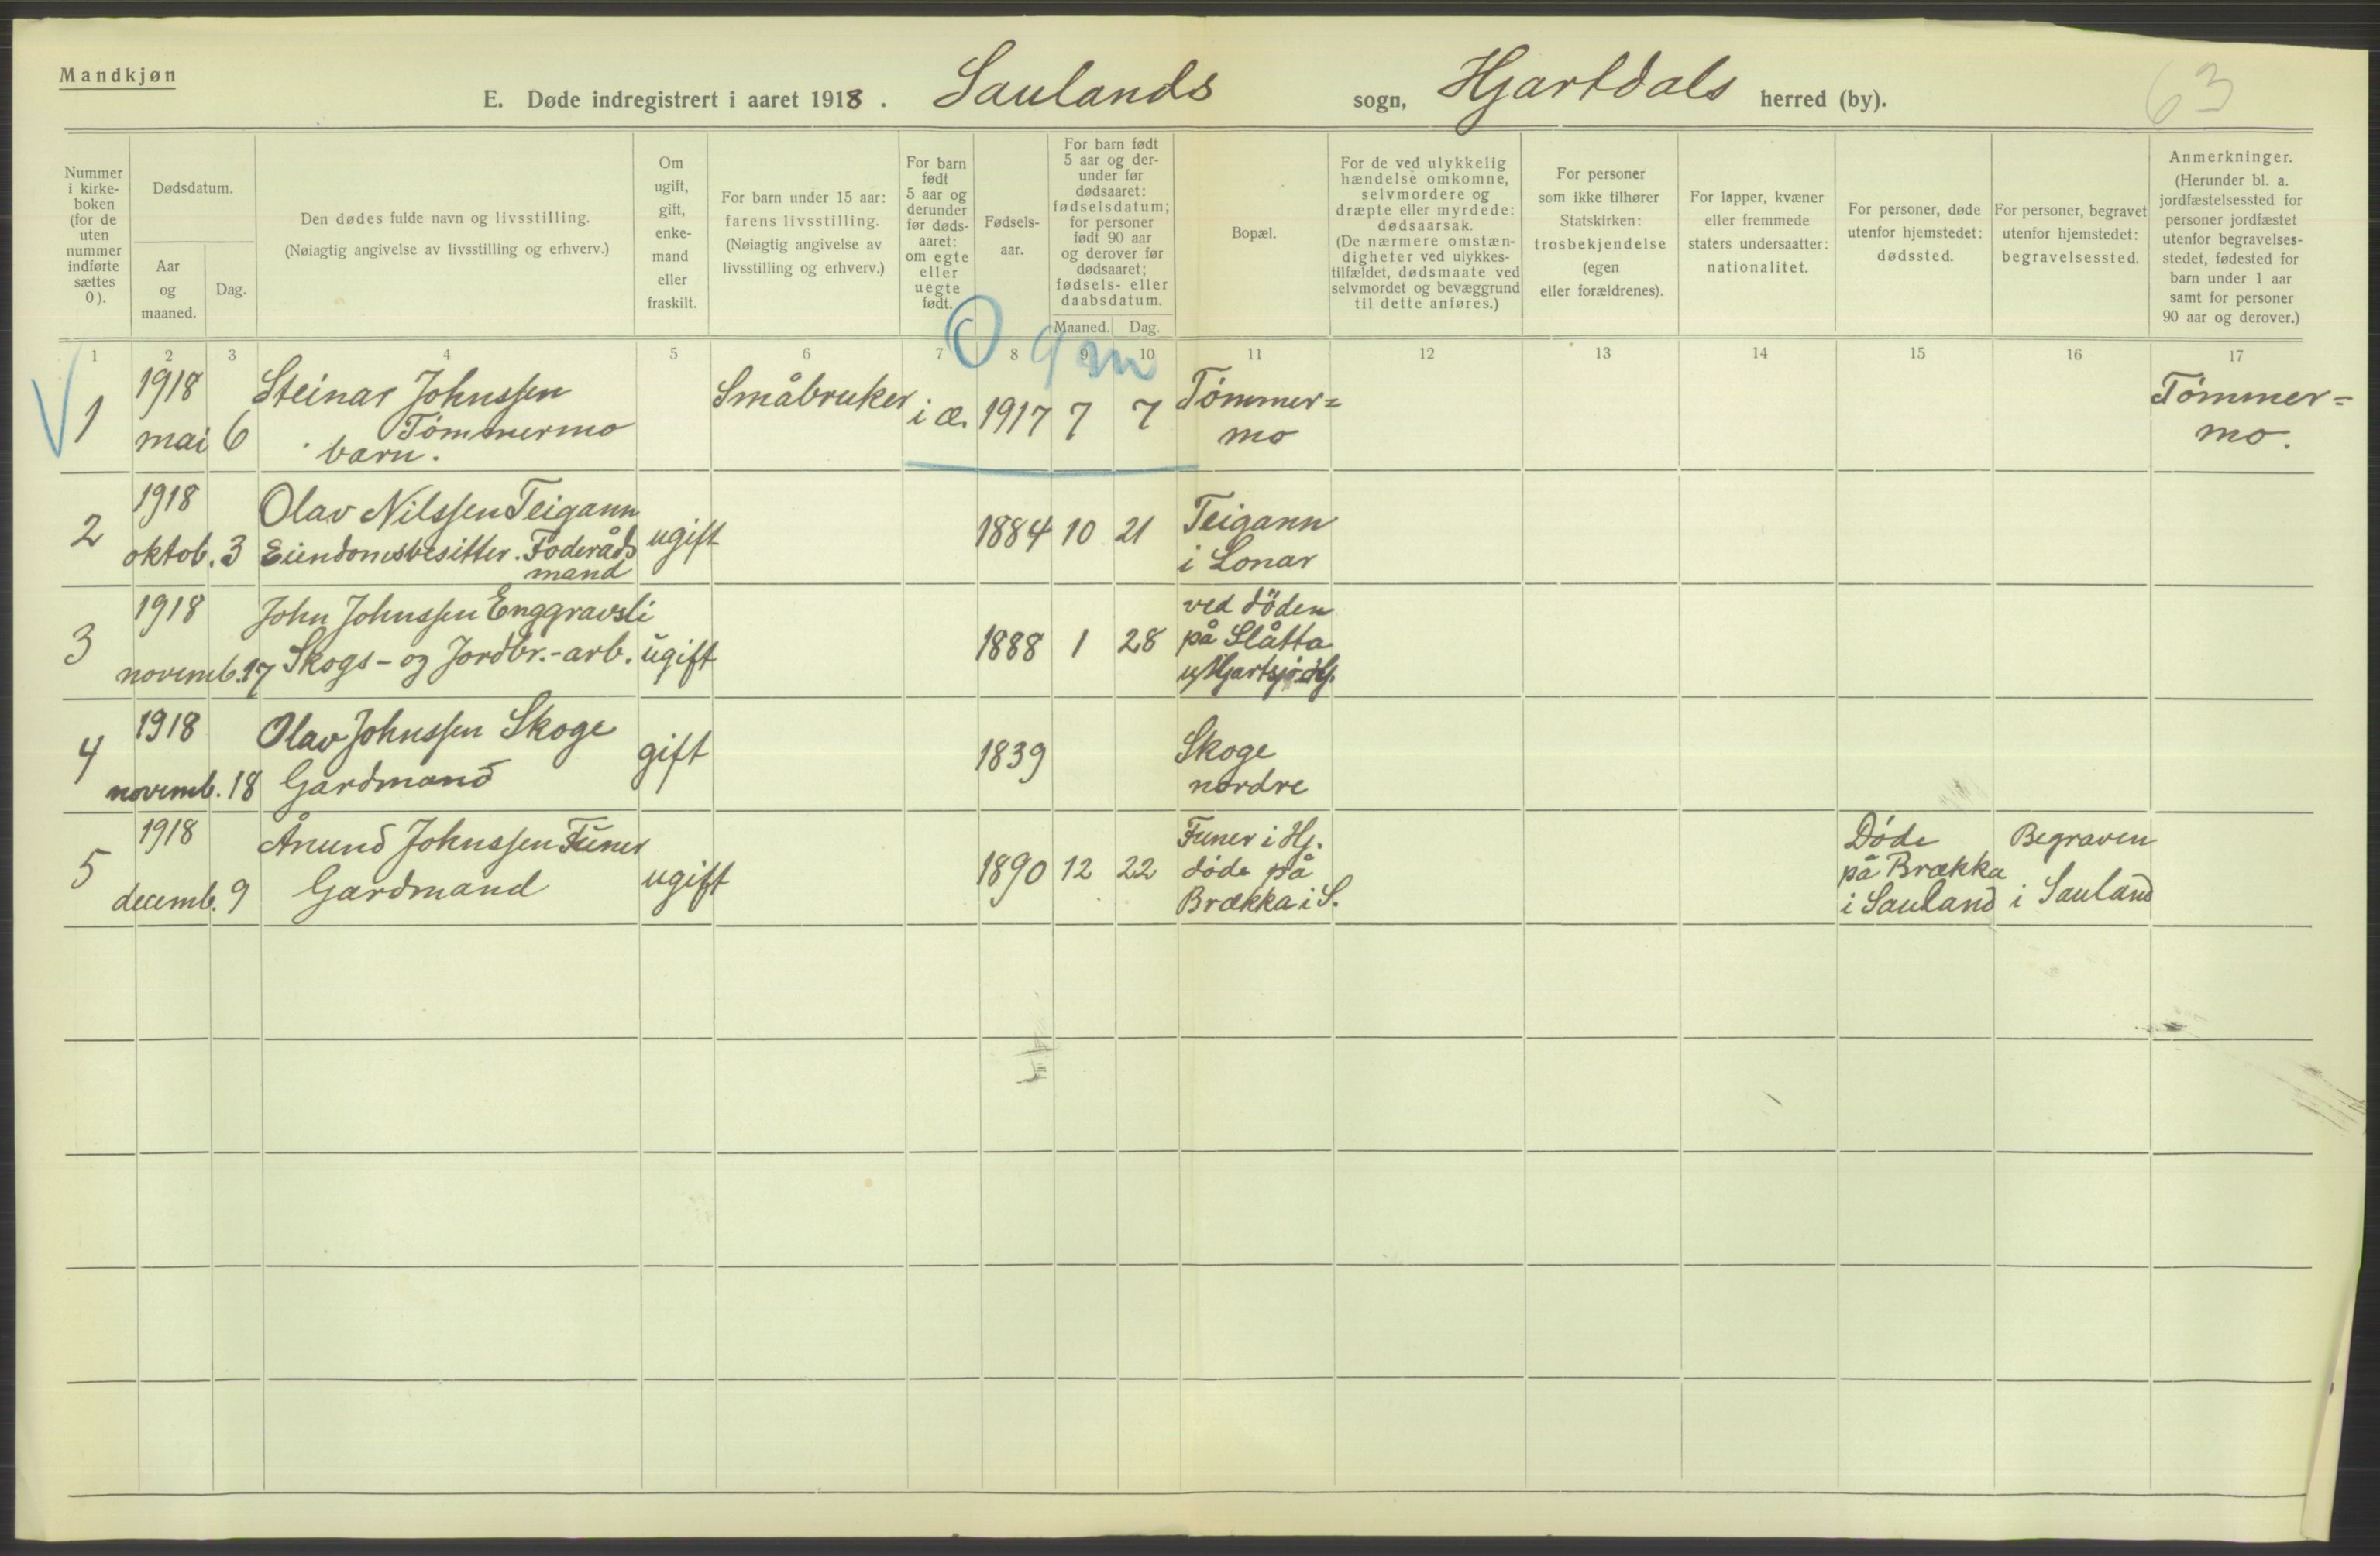 Mandkjøn
E. Døde indregistrert i aaret 1918. Saulands sogn, Hjartdals herred (by).
63
Nummer i kirke-boken (for de uten nummer indførte sættes 0).
Dødsdatum.
Aar og maaned.
Dag.
Den dødes fulde navn og livsstilling.
(Nøiagtig angivelse av livsstilling og erhverv.)
Om ugift, gift, enke-mand eller fraskilt.
For barn under 15 aar: farens livsstilling. (Nøiagtig angivelse av livsstilling og erhverv.)
For barn født 5 aar og derunder før døds-aaret: om egte eller uegte født.
Fødsels-aar.
For barn født 5 aar og der-under før dødsaaret: fødselsdatum; for personer født 90 aar og derover før dødsaaret; fødsels- eller daabsdatum.
Maaned. Dag.
Bopæl.
For de ved ulykkelig hændelse omkomne, selvmordere og dræpte eller myrdede: dødsaarsak. (De nærmere omstæn-digheter ved ulykkes-tilfældet, dødsmaate ved selvmordet og bevæggrund til dette anføres.)
For personer som ikke tilhører Statskirken: trosbekjendelse (egen eller forældrenes).
For lapper, kvæner eller fremmede staters undersaatter: nationalitet.
For personer, døde utenfor hjemstedet: dødssted.
For personer, begravet utenfor hjemstedet: begravelsessted.
Anmerkninger. (Herunder bl. a. jordfæstelsessted for personer jordfæstet utenfor begravelses-stedet, fødested for barn under 1 aar samt for personer 90 aar og derover.)
1 2 3 4 5 6 7 8 9 10 11 12 13 14 15 16 17
0 9 m
1 1918 mai 6 Steinar Johnssen Tømmermo barn. Småbruker i æ. 1917 7 7 Tømmer=mo Tømmer=mo.
2 1918 oktob. 3 Olav Nilssen Teigann Eiendomsbesitter. Foderåds mand ugift 1884 10 21 Teigann i Lonar
3 1918 novemb. 17 John Johnssen Enggravsli Skogs- og Jordbr.-arb. ugift 1888 1 28 ved döden på Slåtta u/Hjartsjö Hj.
4 1918 novemb. 18 Olav Johnssen Skoge Gardmand gift 1839 Skoge nordre
5 1918 decemb. 9 Ånund Johnssen Funer Gardmand ugift 1890 12 22 Funer i Hj. døde på Brækka i S. Døde på Brækka i Sauland Begraven i Sauland